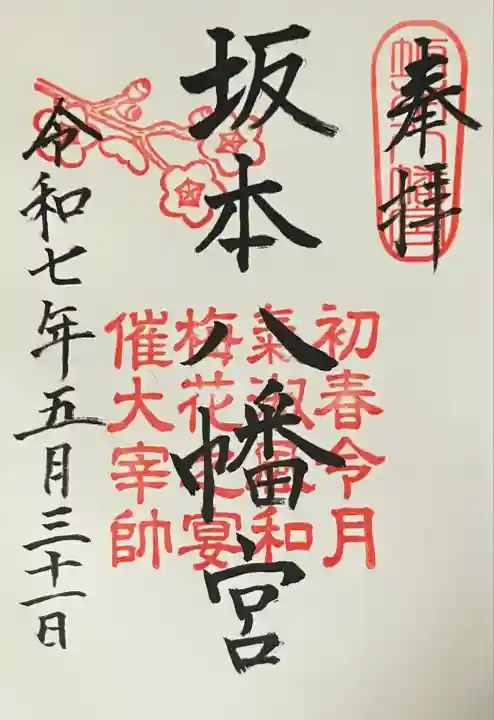 奉拝
坂本八幡宮
初春令月
氣淑風和
梅花之宴
催大宰帥
令和七年五月三十一日